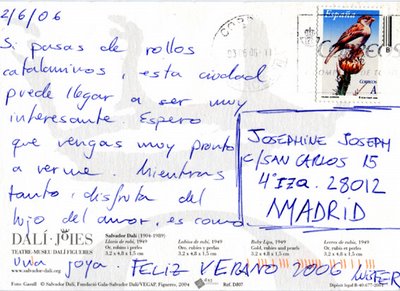 2/6/06
Si pasas de rollos
catalaninos, esta ciudad
puede llegar a ser muy
interesante. Espero
que vengas muy pronto
a verme. Mientras
tanto, disfruta del
lujo del amor, es como
una joya. FELIZ VERANO 2006
JOSEPHINE JOSEPH
C/SAN CARLOS 15
4º IZA. 28012
MADRID
España
CORREOS
A
DALÍ·JOIES
TEATRE-MUSEU DALÍ FIGUERES
www.salvador-dali.org
Salvador Dalí (1904-1989)
Llavis de rubí, 1949
Or, rubins i perles
3.2 x 4,8 x 1,5 cm
Labios de rubí, 1949
Oro, rubíes y perlas
3.2 x 4,8 x 1,5 cm
Ruby Lips, 1949
Gold, rubies and pearls
3.2 x 4,8 x 1,5 cm
Lèvres de rubis, 1949
Or, rubis et perles
3.2 x 4,8 x 1,5 cm
Foto: Gasull © Salvador Dalí, Fundació Gala-Salvador Dalí/VEGAP, Figueres, 2004
Ref. D807